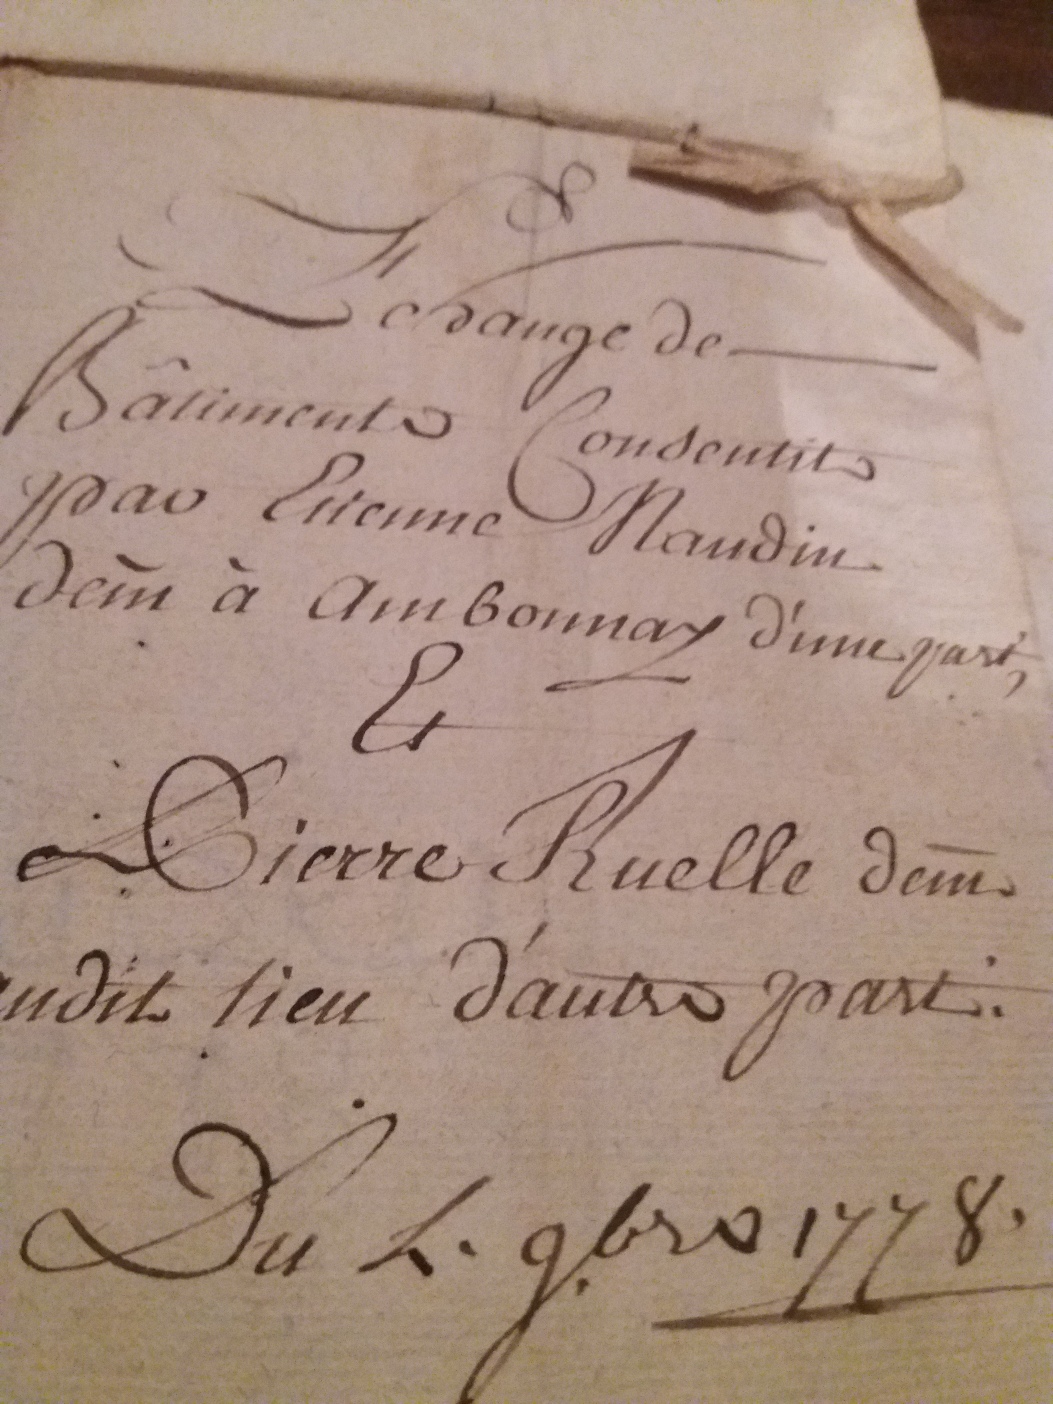 8
Echange de
Bâtiments Consentit
par Etienne Naudin
dem̄ à Ambonnay d'une part,
Et
Pierre Ruelle dem̄
audit lieu d'autre part.
Du 4. 9.bre 1778.